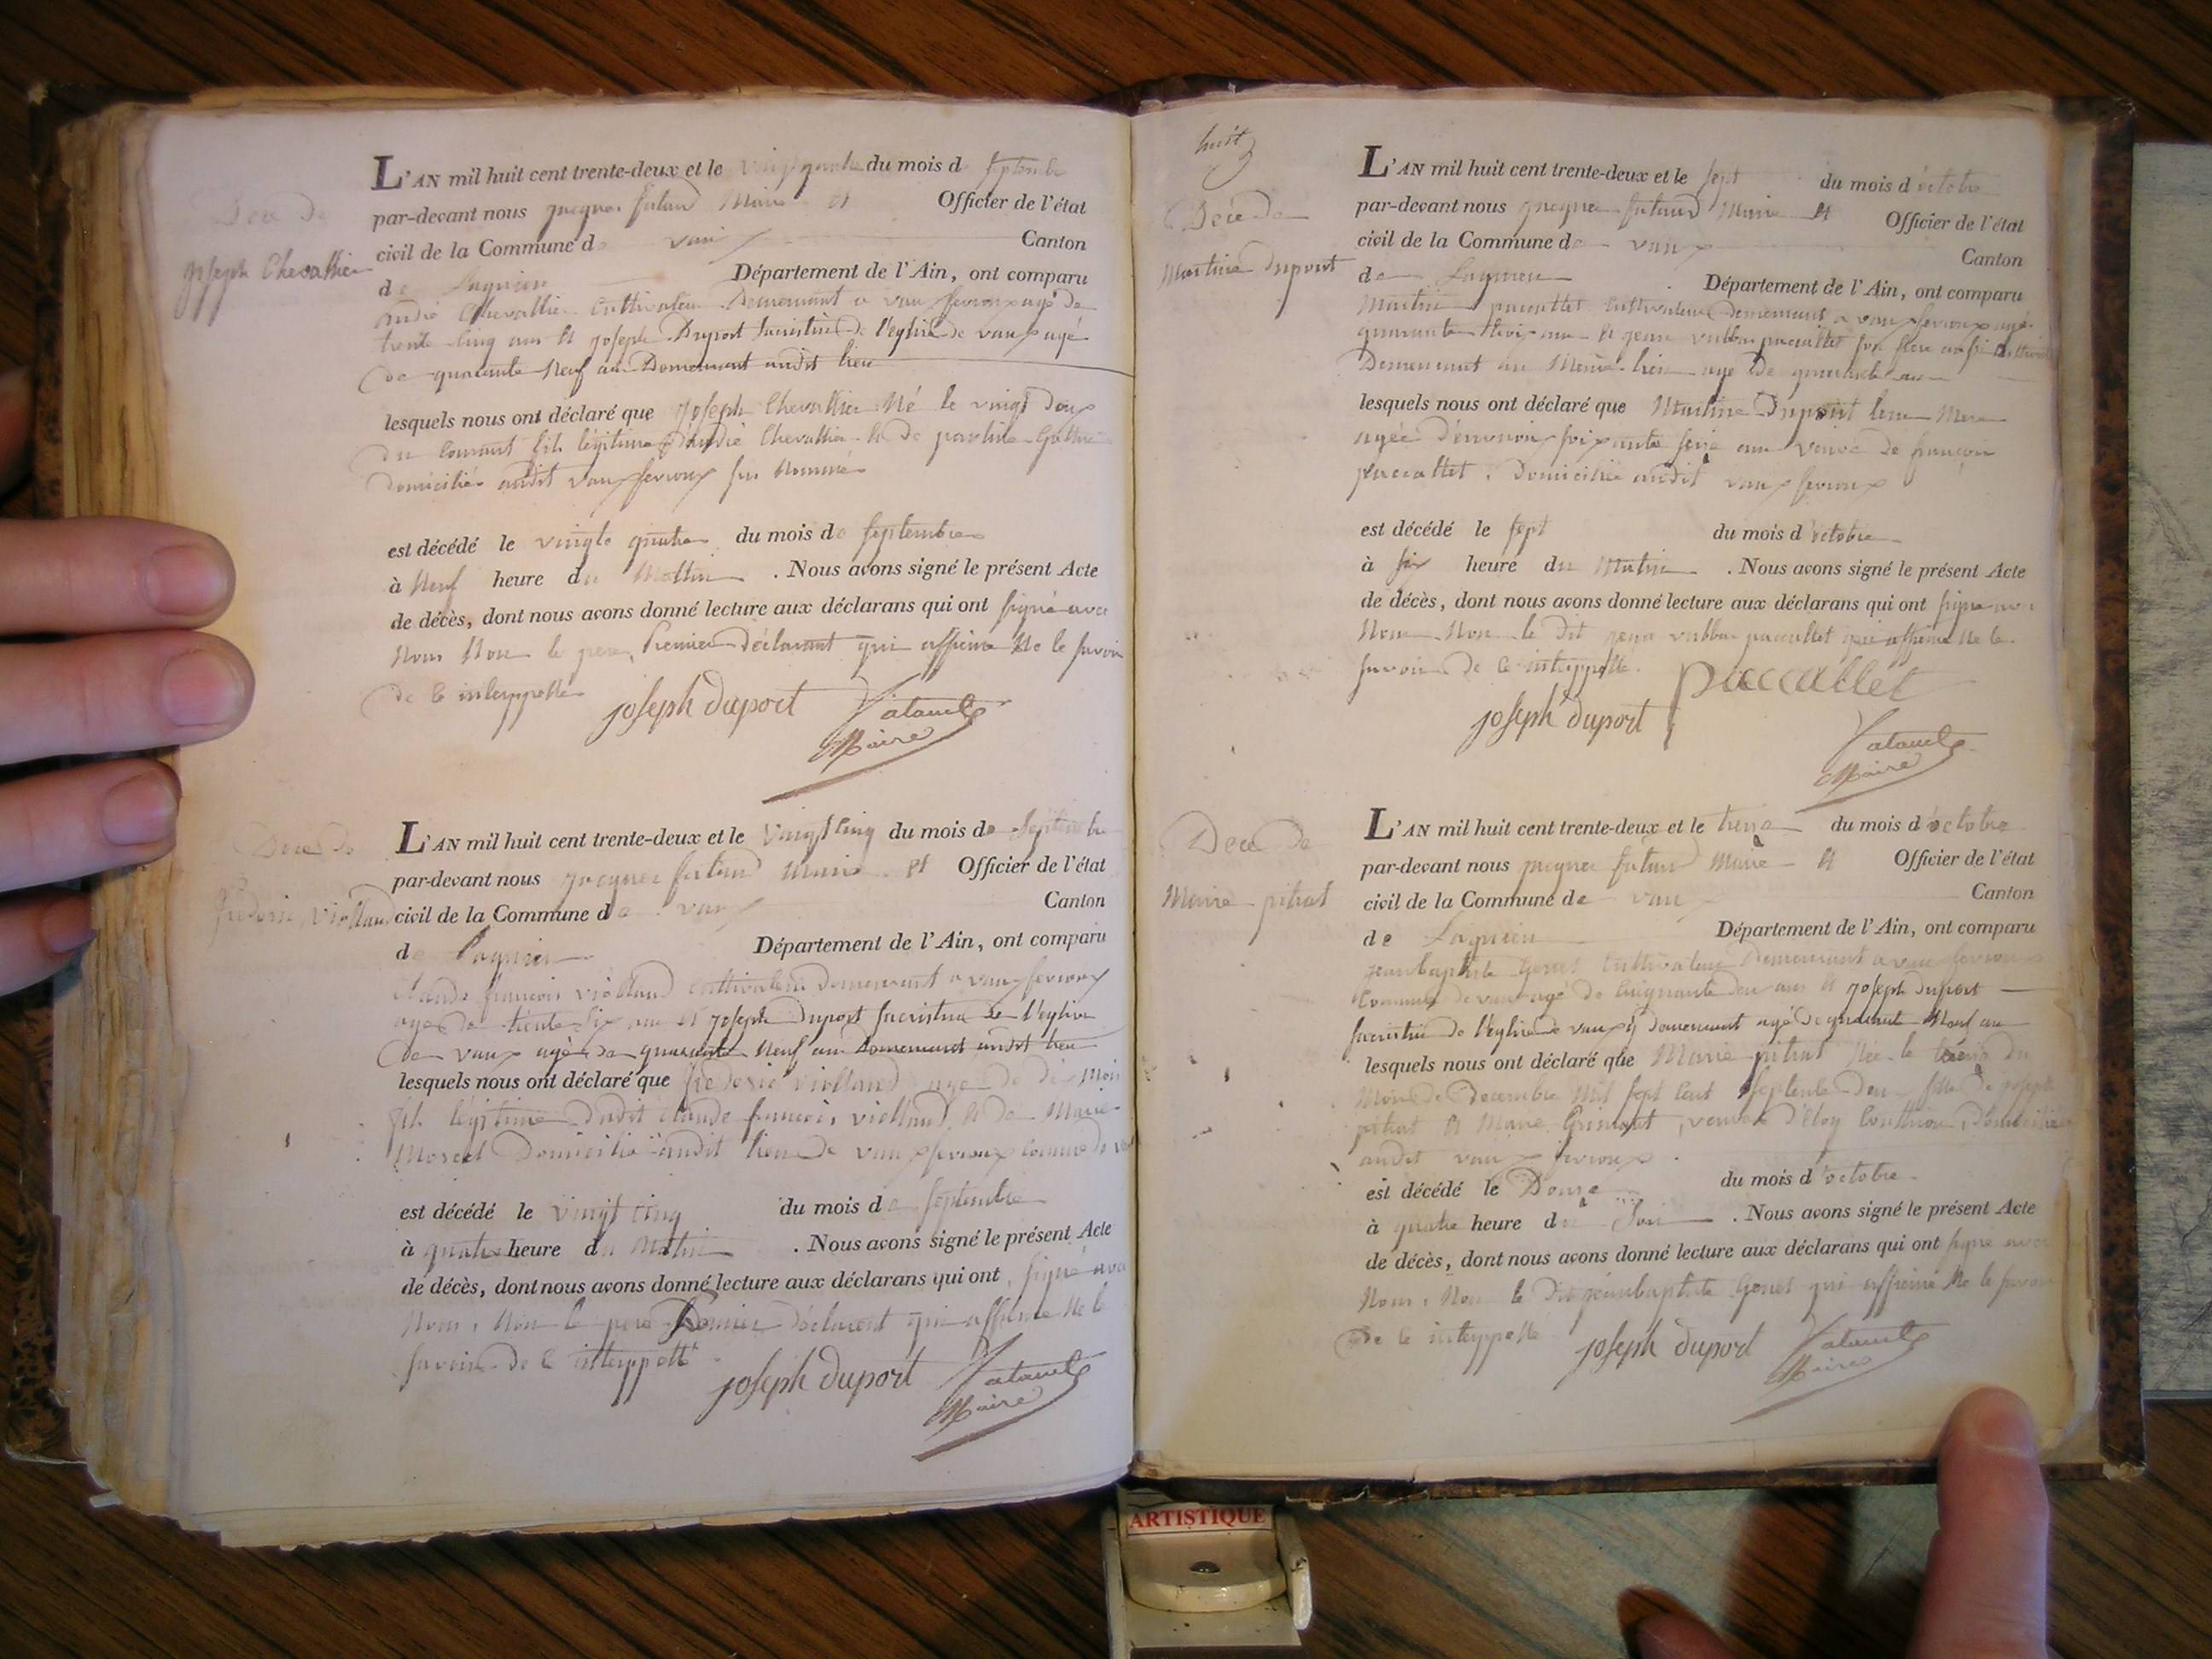 Decè de
joseph Chevallier
L'AN mil huit cent trente-deux et le vingt quatre du mois de septembre
par-devant nous jacques fataud Maire et Officier de l'état
civil de la Commune de vaux Canton
de Lagnieu Département de l'Ain, ont comparu
andré Chevallier Cultivateur Demeurant a vaux fevroux agé de
trente cinq ans et joseph Duport sacristin de l'eglise de vaux agé
de quarante Neuf ans Demeurant audit lieu
lesquels nous ont déclaré que joseph Chevallier Né le vingt deux
du Courant fils légitime d'andré Chevallier et de
domiciliés audit vaux fevroux sus Nommé
est décédé le vingte quatre du mois de septembre
à Neuf heure du Mattin . Nous avons signé le présent Acte
de décès, dont nous avons donné lecture aux déclarans qui ont signé avec
Nous Non le pere, Premier déclarant qui affirme Ne le savoir
de ce interppellé
joseph duport fataud
Maire
Decè de
frederic violland
L'AN mil huit cent trente-deux et le vingt cinq du mois de septembre
par-devant nous jacques fataud Maire et Officier de l'état
civil de la Commune de vaux Canton
de Lagnieu Département de l'Ain, ont comparu
claude françois violland cultivateur demeurant a vaux fevroux
agé de trente six ans et joseph Duport sacristin de l'eglise
de vaux agé de quarante Neuf ans Demeurant audit lieu
lesquels nous ont déclaré que frederic violland agé de dix Mois
fils légitime dudit claude françois violland et de Marie
Morcel Domicilié audit lieu de vaux fevroux commune de
est décédé le vingt cinq du mois de septembre
à quatre heure du Matin . Nous avons signé le présent Acte
de décès, dont nous avons donné lecture aux déclarans qui ont signé avec
Nous, Non le pere Premier déclarant qui affirme Ne le
savoir de ce interppellé
joseph duport fataud
Maire
huit
Decè de
Martine Dupont
L'AN mil huit cent trente-deux et le sept du mois d'octobre
par-devant nous jacques fataud Maire et Officier de l'état
civil de la Commune de vaux Canton
de Lagnieu Département de l'Ain, ont comparu
Martin paccallet Cultivateur Demeurant a vaux fevroux agé
quarante trois ans et jean paccallet son frere aussi
Demeurant au Même lieu agé de quarante ans
lesquels nous ont déclaré que Martine Dupont leur Mere
agée d'environ soixante seize ans veuve de françois
paccallet, Domiciliée audit vaux fevroux
est décédé le sept du mois d'octobre
à six heure du Matin . Nous avons signé le présent Acte
de décès, dont nous avons donné lecture aux déclarans qui ont signé avec
Nous Non le dit jean paccallet qui affirme Ne le
savoir de ce interppellé.
paccallet
joseph duport
fataud
Maire
Decè de
Marie pitrat
L'AN mil huit cent trente-deux et le treize du mois d'octobre
par-devant nous jacques fataud Maire et Officier de l'état
civil de la Commune de vaux Canton
de Lagnieu Département de l'Ain, ont comparu
jeanbaptiste Gonet Cultivateur Demeurant a vaux fevroux
Commune de vaux agé de Cinquante deux ans et joseph duport
sacristin de l'eglise de vaux y demeurant agé de quarante Neuf ans
lesquels nous ont déclaré que Marie pitrat Née le treize du
Mois de Decembre Mil sept Cent septente deux fille de joseph
pitrat et Marie veuve d'Eloy Domiciliée
audit vaux fevroux.
est décédé le Douze du mois d'octobre
à quatre heure du soir . Nous avons signé le présent Acte
de décès, dont nous avons donné lecture aux déclarans qui ont signé avec
Nous, Non le Dit jeanbaptiste Gonet qui affirme Ne le savoir
de ce interppellé
joseph duport fataud
Maire
ARTISTIQUE